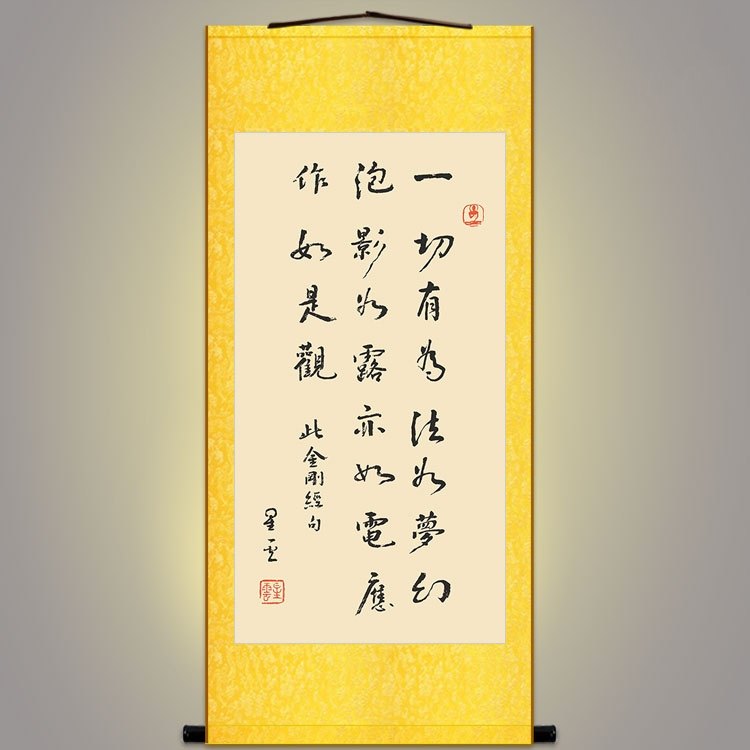 一切有為法如夢幻
泡影如露亦如電應
作如是觀
此金剛經句
星雲
星雲